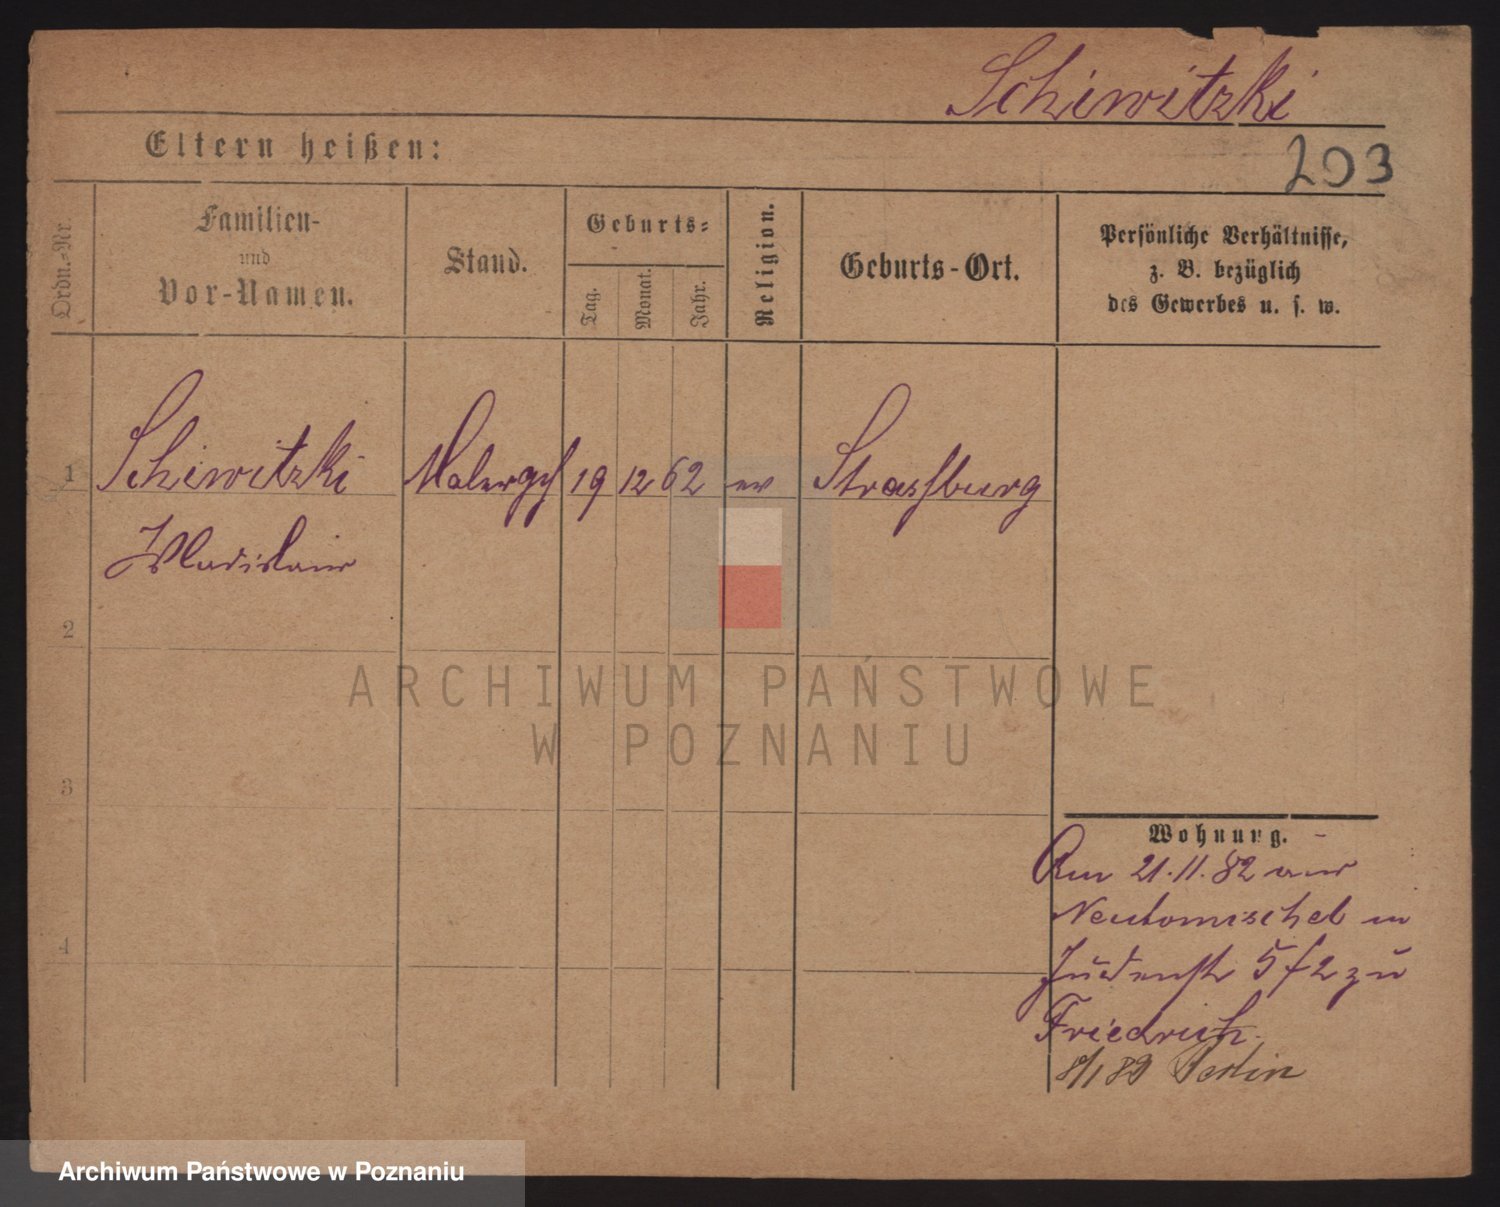 Schiwitzki
203
Eltern heißen:
Ordn.-Nr.
Familien-
und
Vor-Namen.
Stand.
Geburts-
Tag.
Monat.
Jahr.
Religion.
Geburts-Ort.
Persönliche Verhältnisse,
z. B. bezüglich
des Gewerbes u. s. w.
1 Schiwitzki Malergh 19 12 62 ev Strassburg
Wladislaus
2
3
4
ARCHIWUM PAŃSTWOWE
W POZNANIU
Wohnung.
Am 21.11.82 aus
Neutomischel in
Judenstr 5 f 2 zu
Friedrich.
Berlin
Archiwum Państwowe w Poznaniu